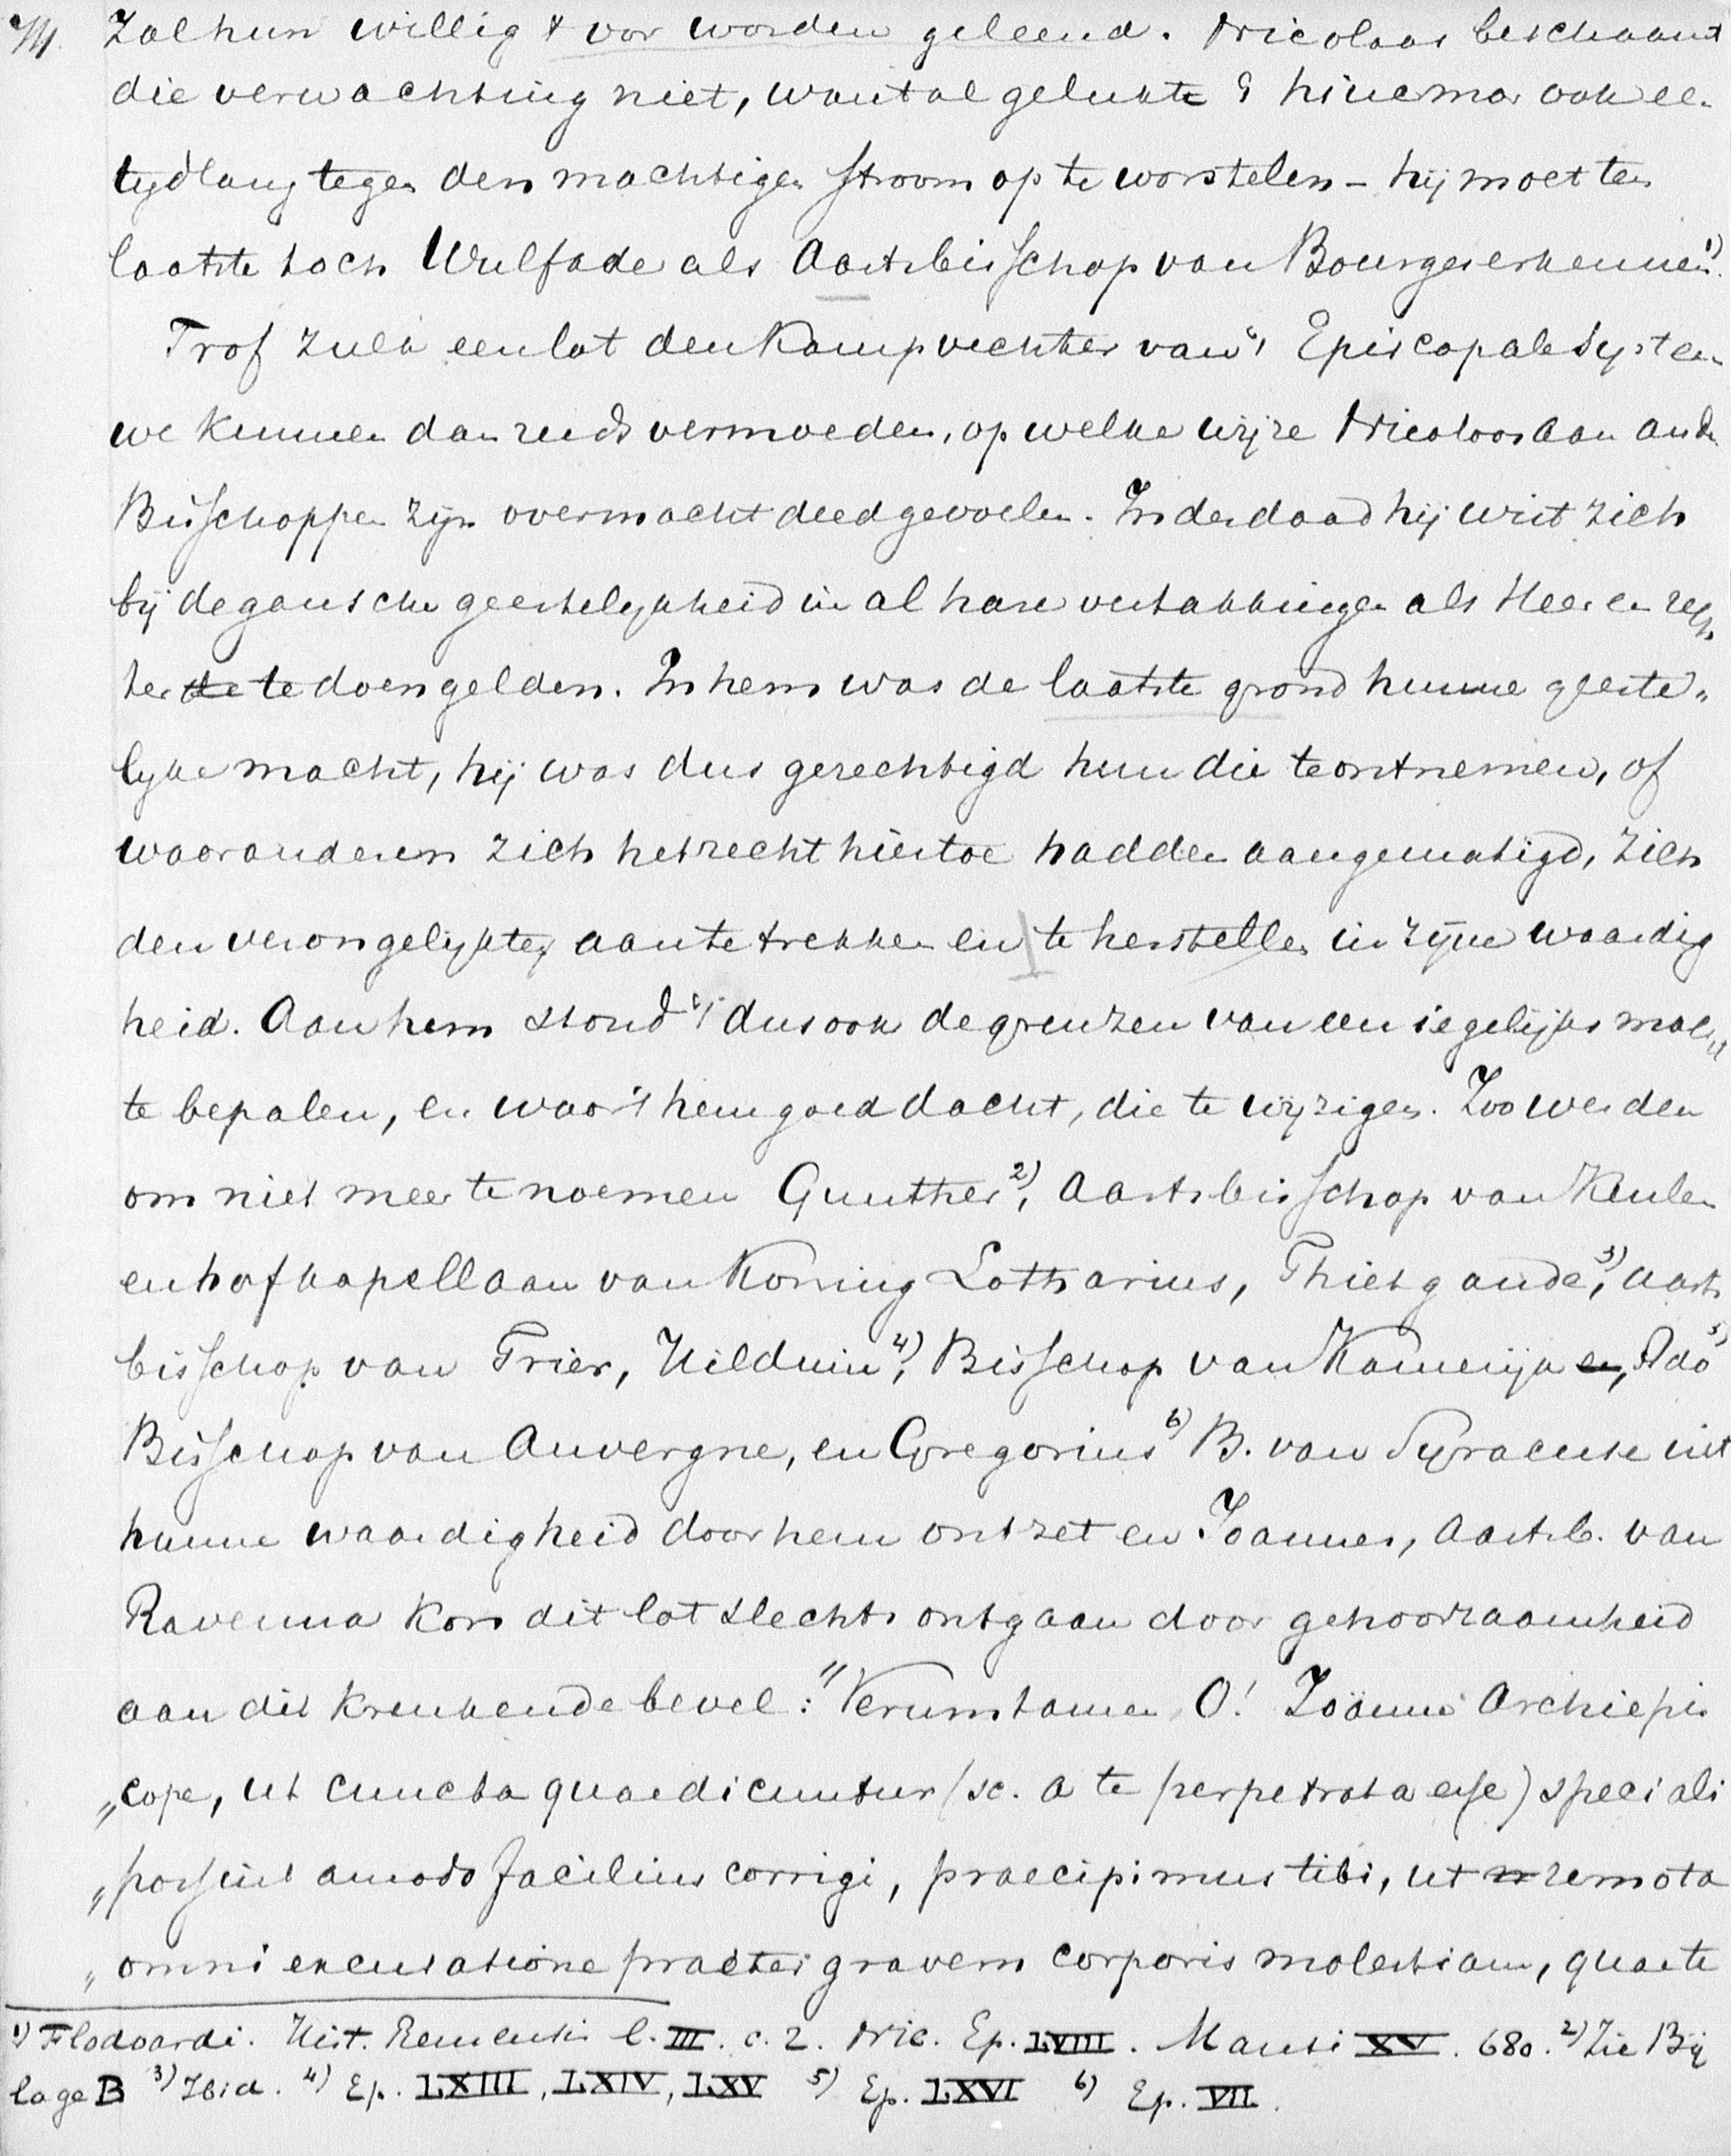 Zal hun willig 't oor worden geleend. Nicolaas beschaamt
die verwachting niet, want al gelukte 't Hincmar ook een
tydlang tegen den machtigen stroom op te worstelen – hij moet ten
laatste toch Wulfade als Aartsbisschop van Bourges erkennen 1).
Trof zulk een lot den Kampvechter van 't Episcopale systeem
we kunnen dan reeds vermoeden, op welke wijze Nicolaas aan andre
Bisschoppen zijn overmacht deed gevoelen. Inderdaad hij wist zich
bij de gansche geestelykheid in al hare vertakkingen als Heer en rech
ter te doen gelden. In hem was de laatste grond hunne geeste„
lyke macht, hij was dus gerechtigd hun die te ontnemen, of
waar anderen zich het recht hiertoe hadden aangematigd, zich
den verongelykten aan te trekken en te herstellen in zijne waardig
heid. Aan hem stond 't dus ook de grenzen van een iegelijks macht
te bepalen, en waar 't hem goed dacht, die te wijzigen. Zoo werden
om niet meer te noemen Gunther 2), Aartsbisschop van Keulen
en hofkapellaan van Koning Lotharius, Thietgaude 3), Aarts
bisschop van Trier, Hilduin 4), Bisschop van Kamerijk, Ado 5)
Bisschop van Auvergne, en Gregorius 6) B. van Syracuse uit
hunne waardigheid door hem ontzet en Joannes, Aartsb. van
Ravenna kon dit lot slechts ontgaan door gehoorzaamheid
aan dit krenkende bevel: "Verumtamen O! Joänne Archiepis
„cope, ut cuncta quae dicuntur (sc. a te perpetrata esse) speciali
„possint amodo facilius corrigi, praecipimus tibi, ut remota
„omni excusatione praeter gravem corporis molestiam, quae te
1) Flodoardi. Hist. Remensis l. III. c. 2. Nic. Ep. LVIII. Mansi XV. 680. 2) Zie Bij
lage B 3) Ibid. 4) Ep. LXIII, LXIV, LXV 5) Ep. LXVI 6) Ep. VII.